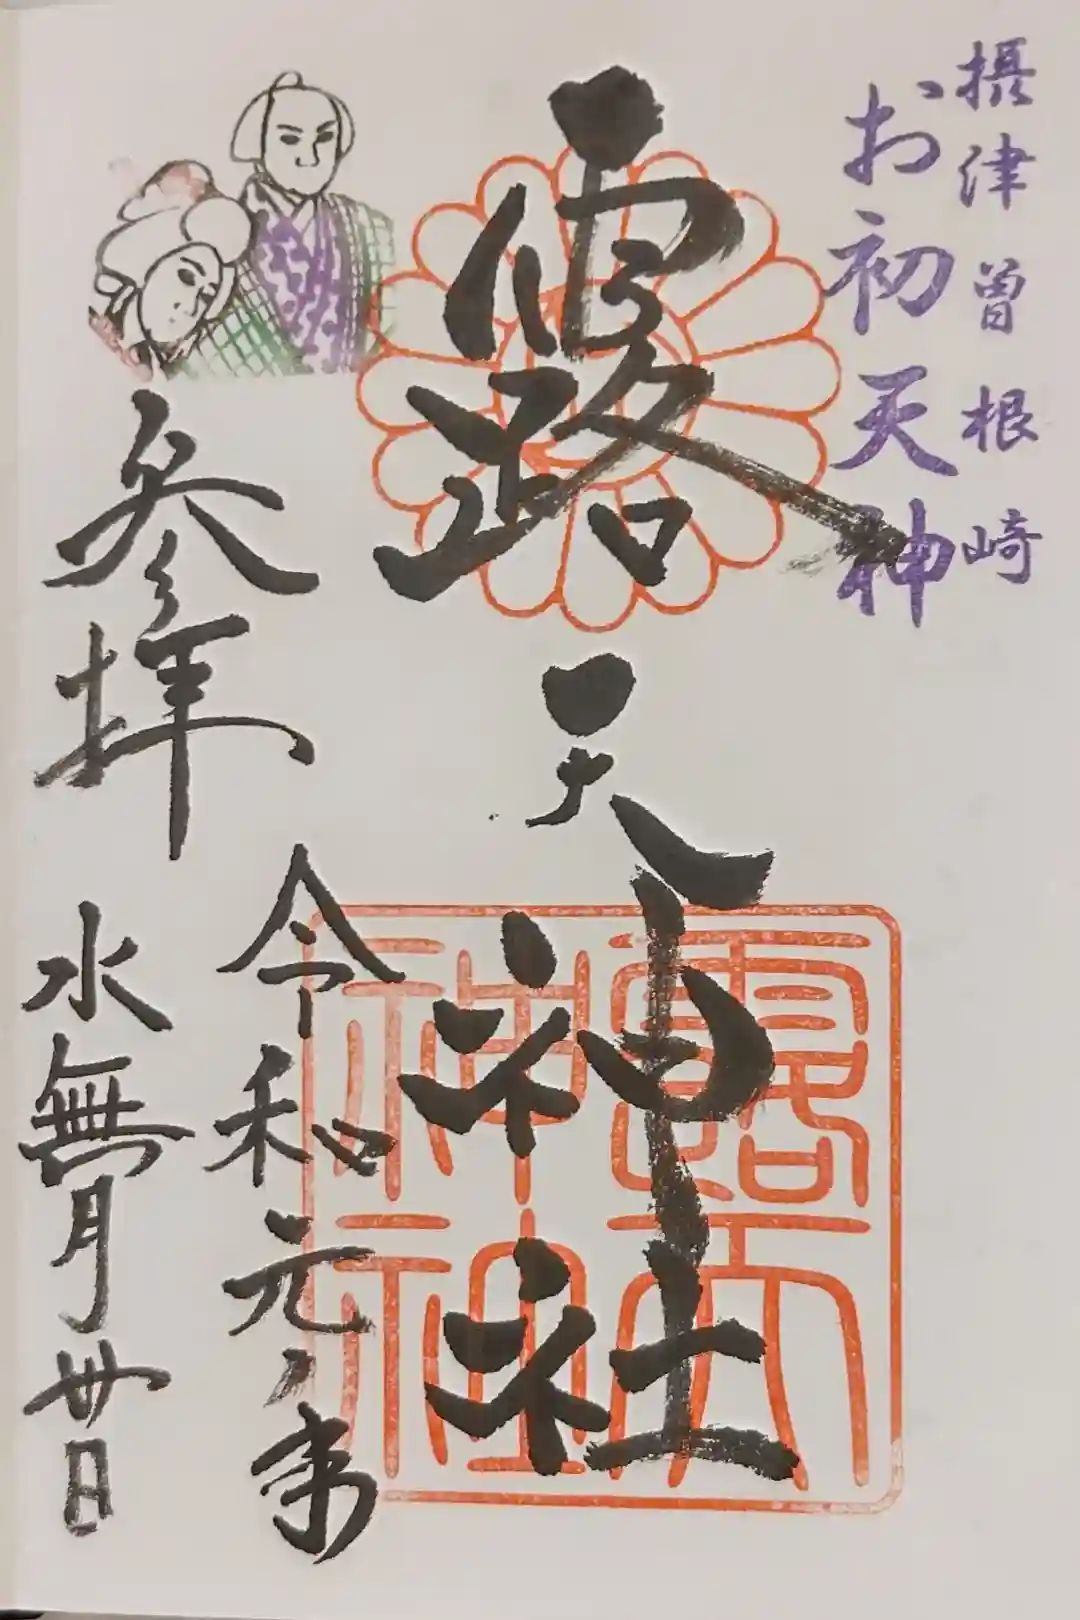 摂津曽根崎
お初天神
露天神社
露天
神社
参拝
令和元年
水無月卅日